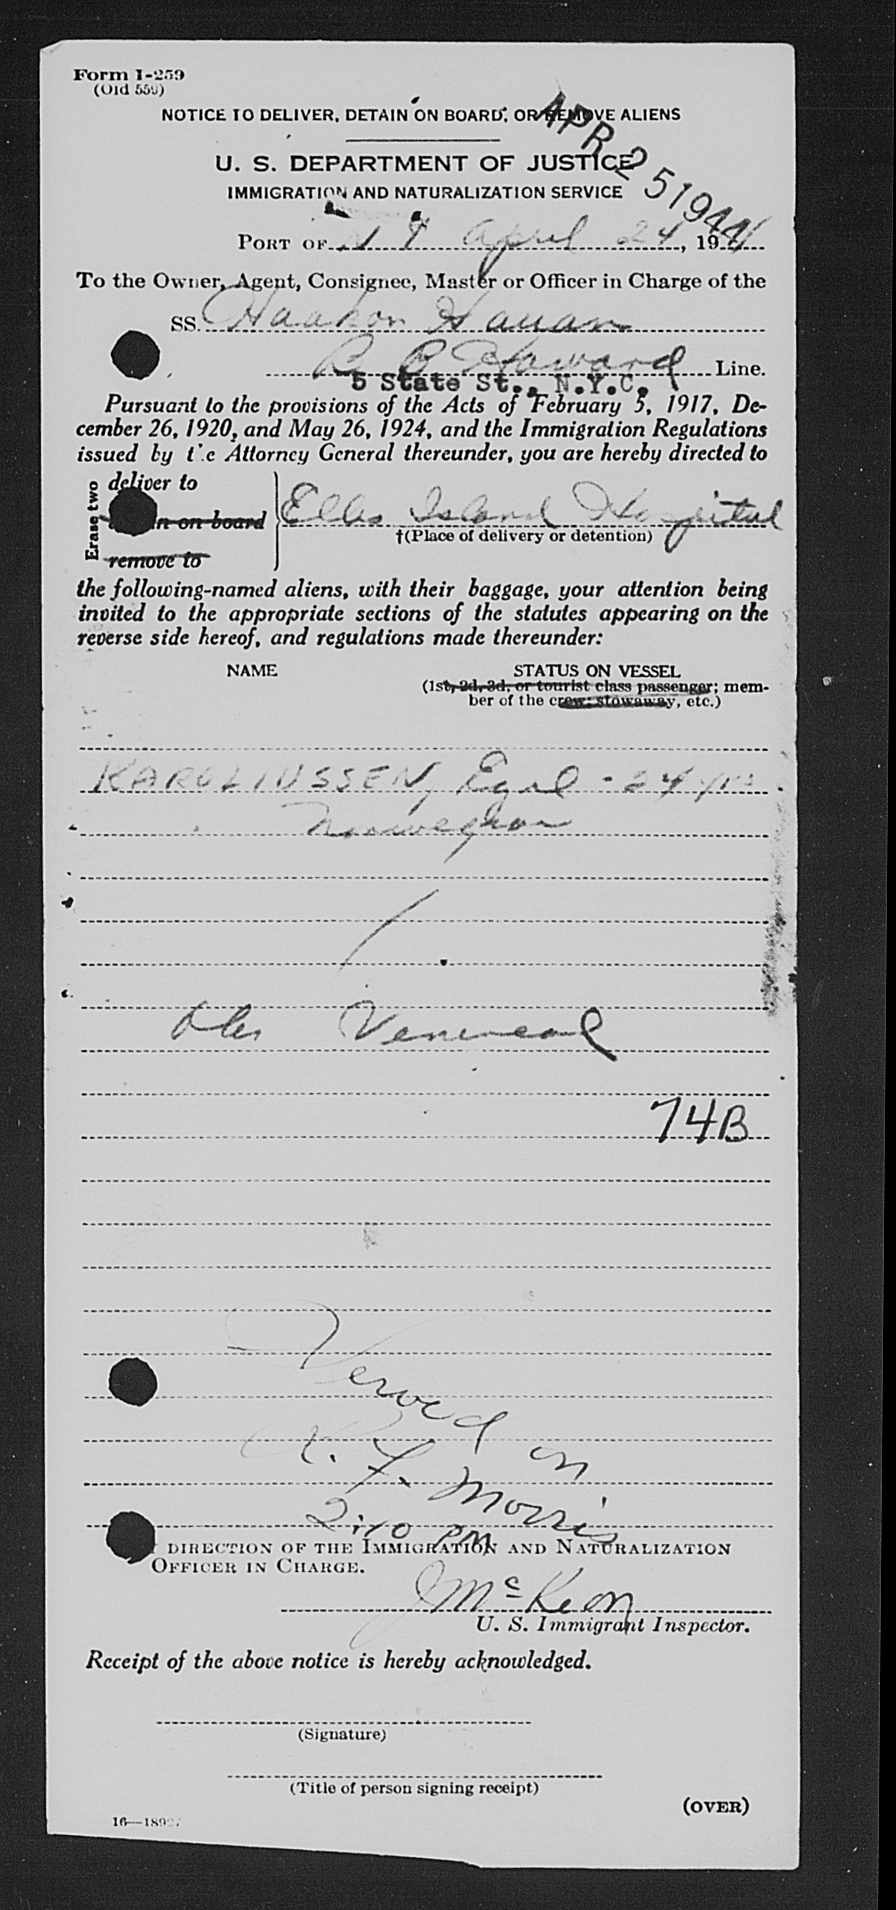 Form I-259
(Old 559)
NOTICE TO DELIVER, DETAIN ON BOARD, OR REMOVE ALIENS
APR 25 1944
U. S. DEPARTMENT OF JUSTICE
IMMIGRATION AND NATURALIZATION SERVICE
PORT OF N Y April 24, 1944
To the Owner, Agent, Consignee, Master or Officer in Charge of the
SS. Haakon Hauan
B Howard Line.
5 State St., N.Y.C.
Pursuant to the provisions of the Acts of February 5, 1917, De-
cember 26, 1920, and May 26, 1924, and the Immigration Regulations
issued by the Attorney General thereunder, you are hereby directed to
Erase two
deliver to
n on board
remove to
Ellis Island Hospital
†(Place of delivery or detention)
the following-named aliens, with their baggage, your attention being
invited to the appropriate sections of the statutes appearing on the
reverse side hereof, and regulations made thereunder:
NAME STATUS ON VESSEL
(1st, 2d, 3d, or tourist class passenger; mem-
ber of the crew; stowaway, etc.)
KAROLIUSSEN, Egil - 24 yrs
Norwegian
/
Obs Venereal
74B
Served on
K. F. Morris
2:10 PM
DIRECTION OF THE IMMIGRATION AND NATURALIZATION
OFFICER IN CHARGE.
J McKeon
U. S. Immigrant Inspector.
Receipt of the above notice is hereby acknowledged.
(Signature)
(Title of person signing receipt)
(OVER)